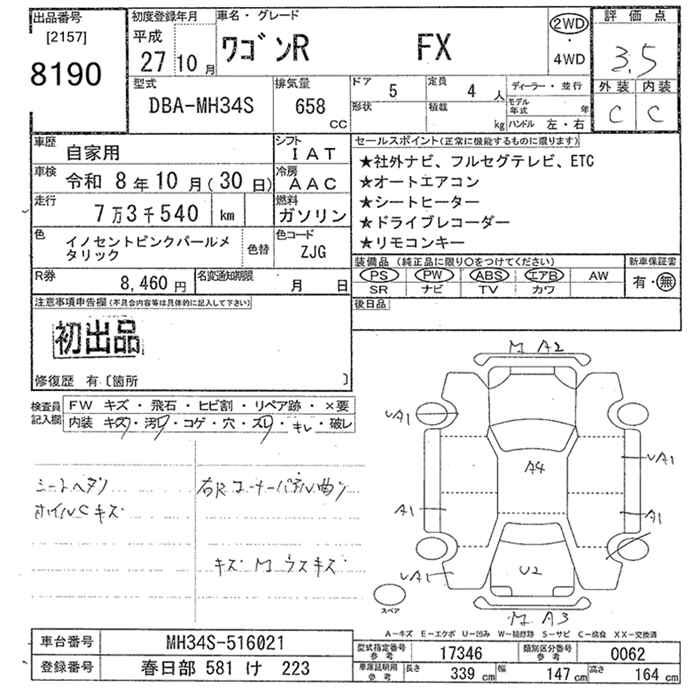 出品番号
[2157]
8190
初度登録年月
平成
27年10月
車名・グレード
ワゴンR FX
2WD
・
4WD
評価点
3.5
外装 内装
C C
型式
DBA-MH34S
排気量
658
CC
ドア 5
定員 4人
形状
積載 kg
ディーラー・並行
モデル年式 年
ハンドル 左・右
車歴 自家用
シフト IAT
車検 令和 8年10月(30日)
冷房 AAC
走行 7万3千540 km
燃料 ガソリン
色 イノセントピンクパールメタリック
色替
色コード ZJG
R券 8,460円
名変通知期限 月 日
セールスポイント(正常に機能するものに限ります)
★社外ナビ、フルセグテレビ、ETC
★オートエアコン
★シートヒーター
★ドライブレコーダー
★リモコンキー
装備品(純正品に限り○をつけてください)
PS PW ABS エアB AW
SR ナビ TV カワ
新車保証書
有・無
後日品
注意事項申告欄(不具合内容等は具体的に記入して下さい)
初出品
修復歴 有〔箇所 〕
検査員記入欄
FW キズ・飛石・ヒビ割・リペア跡・×要
内装 キズ・汚レ・コゲ・穴・スレ・キレ・破レ
シートヘタリ
ホイルCキズ
右Rコーナーパネル曲り
キズ M ウスキズ
M A2
A1
A4
A1
A1
A1
A1
U2
M A3
スペア
A-キズ E-エクボ U-凹み W-補修跡 S-サビ C-腐食 XX-交換済
車台番号 MH34S-516021
登録番号 春日部 581 け 223
型式指定番号 参考 17346
類別区分番号 参考 0062
車庫証明用 参考
長さ 339 cm
幅 147 cm
高さ 164 cm